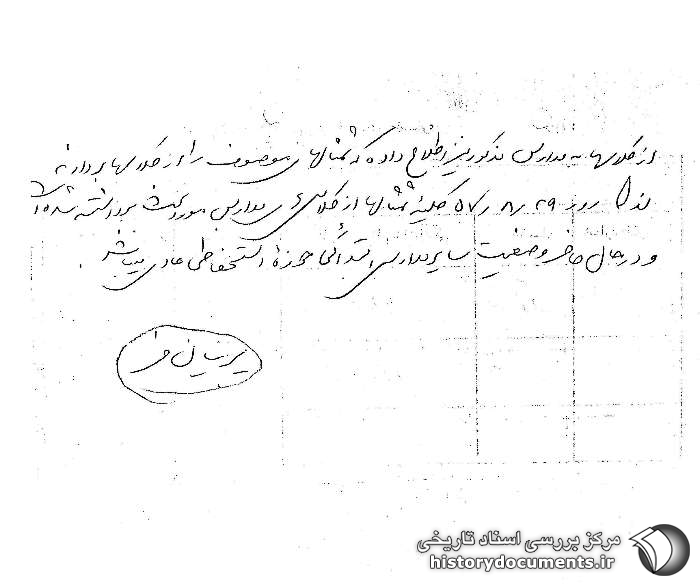 از کلاسها به مدارس مذکور نیز اطلاع داده که تمثالهای موصوف را از کلاسها بردارند
لذا روز ۵۷/۸/۲۹ کلیۀ تمثالها از کلاسهای مدارس مورد بحث برداشته شده است
و در حال حاضر وضعیت سایر مدارس ابتدائی حوزۀ استحفاظی عادی میباشد.
مرکز بررسی اسناد تاریخی
historydocuments.ir